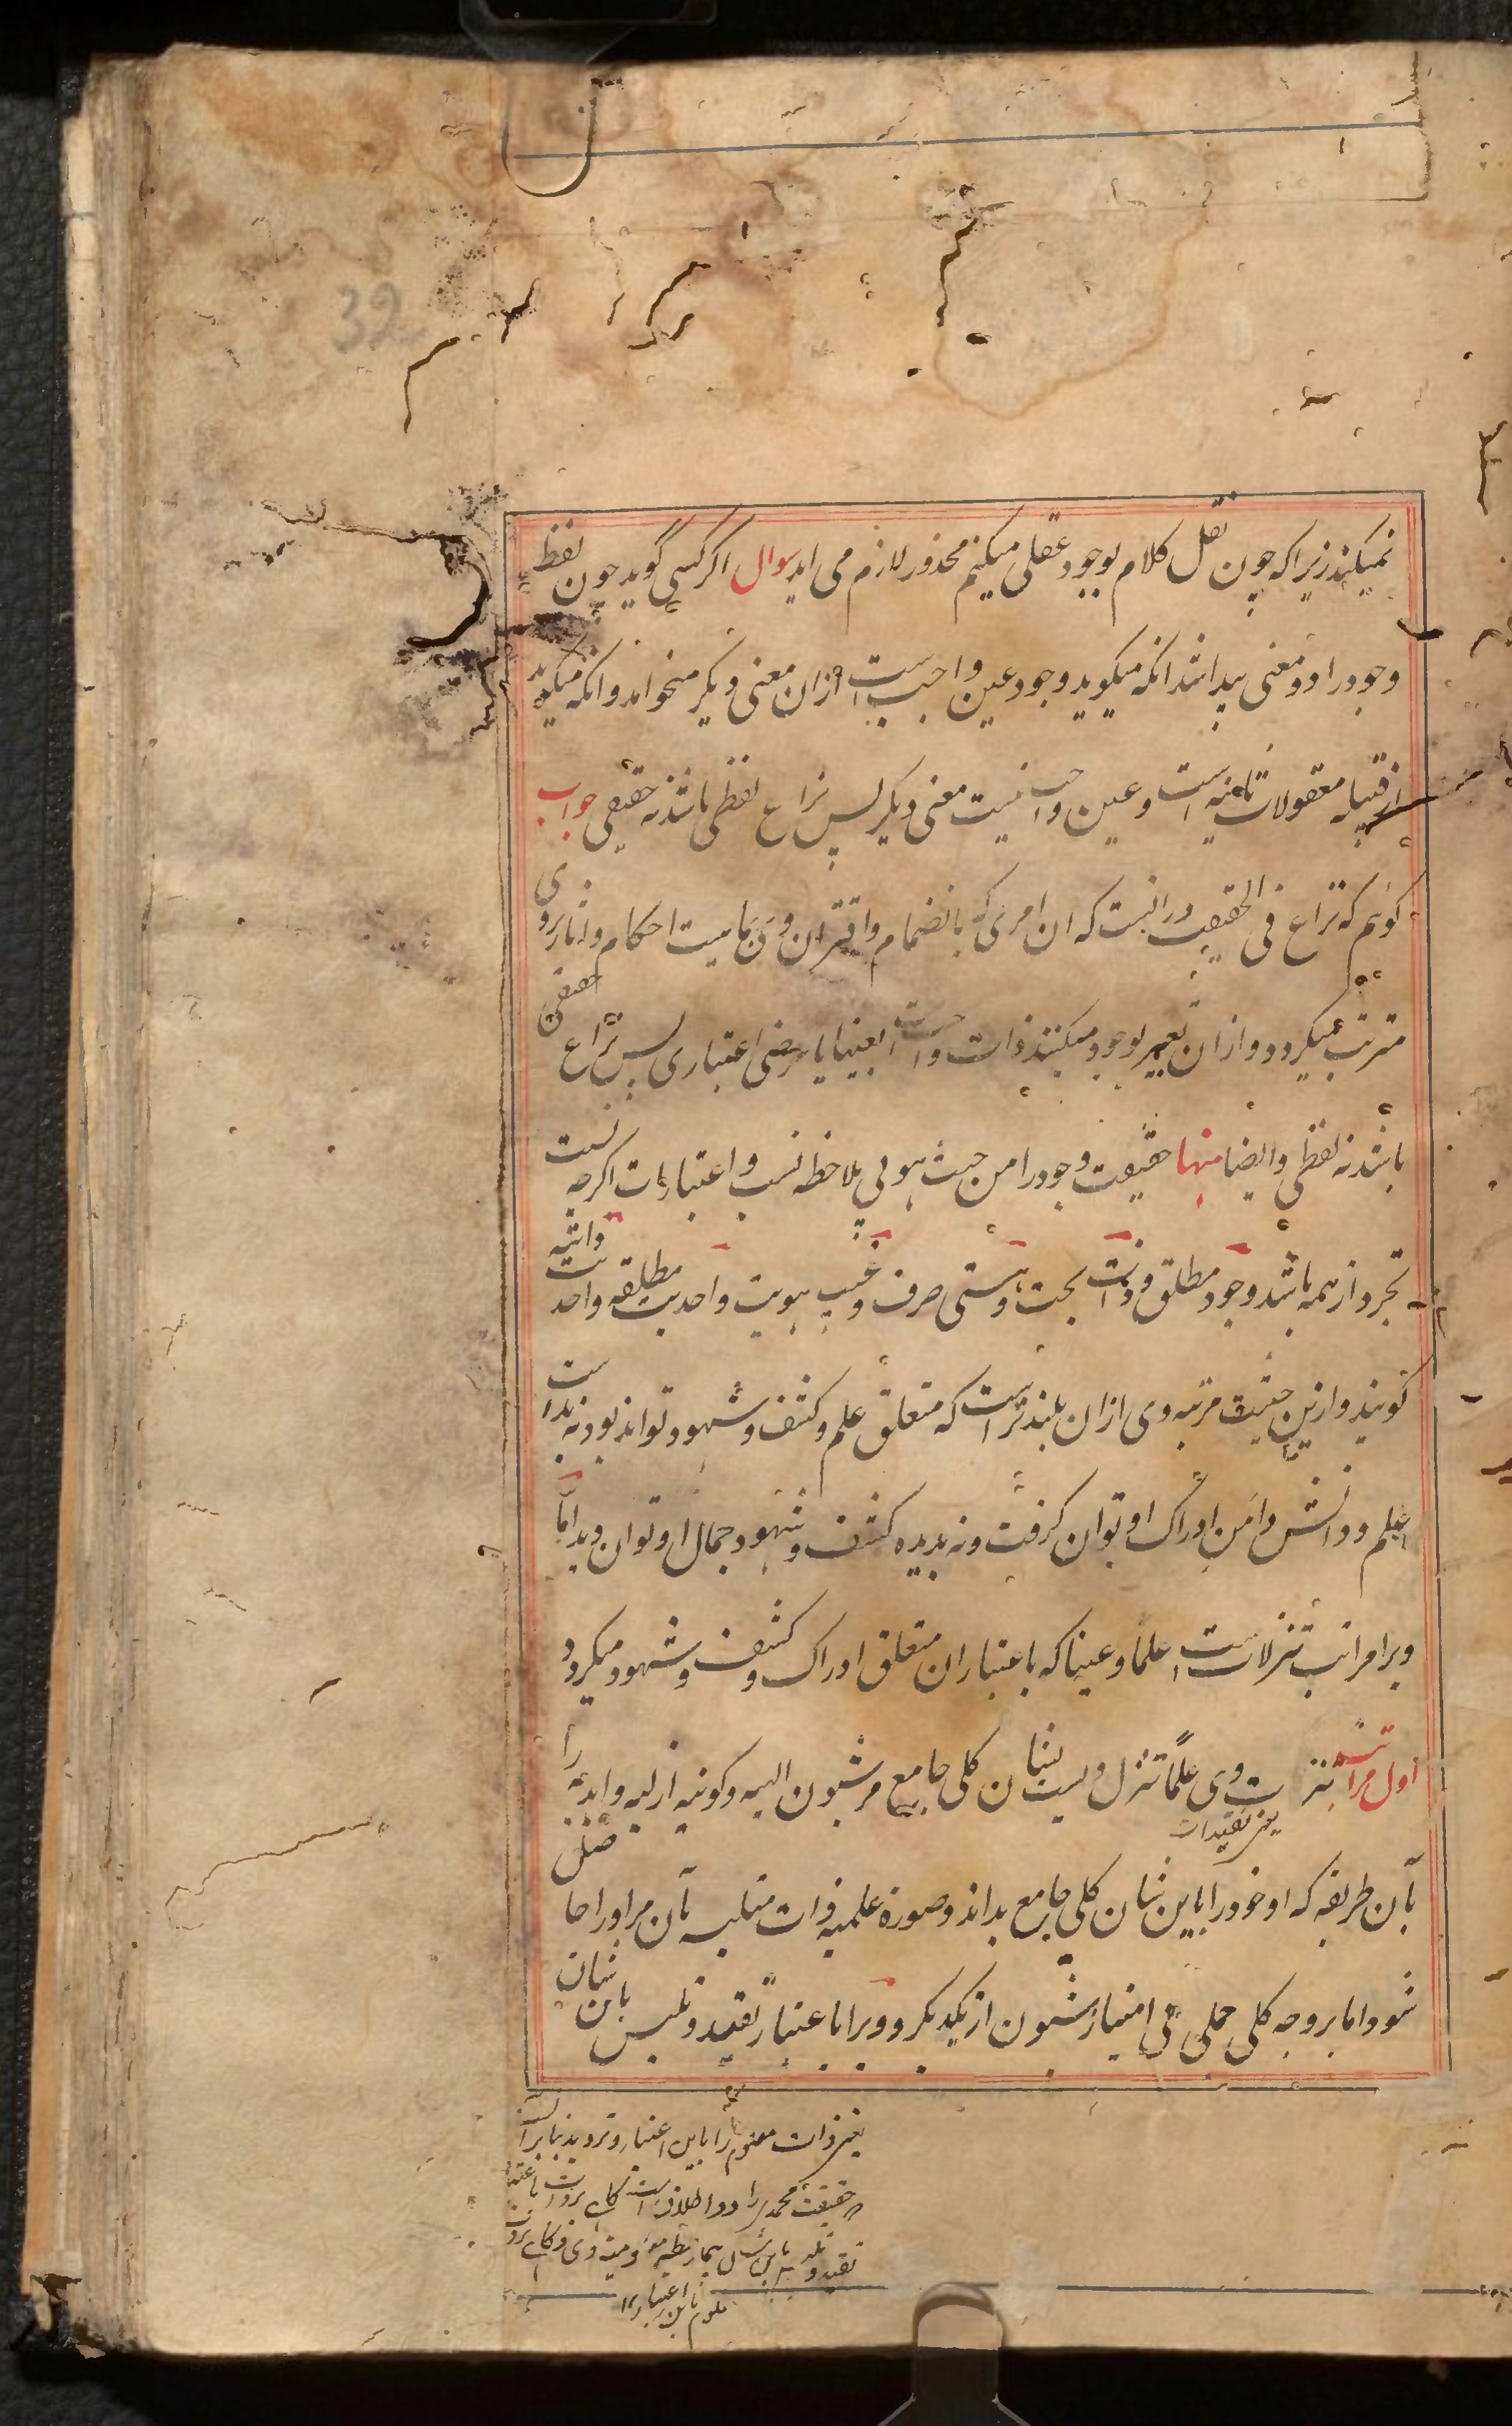 نمیکند زیرا که چون نقل کلام بوجود عقلی میکنیم محذور لازم می اید سوال اگر کسی گوید چون لفظ
وجود را دو معنی پیدا شد انکه میگوید وجود عین واجب است ازان معنی دیگر میخواهد و انکه میگوید
از قبیله معقولات ثانیه است و عین واجب نیست معنی دیگر پس نزاع لفظی باشد نه حقیقی جواب
گویم که نزاع فی الحقیقت در انست که ان امری که بانضمام و اقتران وی بماهیت احکام و اثار بروی
مترتب میگردد و ازان تعبیر بوجود میکنند ذات واجب است بعینها یا عرضی اعتباری پس نزاع حقیقی
باشد نه لفظی و ایضا منها حقیقت وجود را من حیث هو بی ملاحظه نسب و اعتبارات اگرچه نسبت
تجرد از همه باشد وجود مطلق و ذات بحت و هستی صرف و غیب هویت و احدیت مطلقه و احدیت ذاتیه
گویند و ازین حیثیت مرتبه وی ازان بلندتر است که متعلق علم و کشف و شهود تواند بود نه بدست
علم و دانش دامن ادراک او توان گرفت و نه بدیده کشف و شهود جمال او توان دید اما
ویرا مراتب تنزلات است علما و عینا که باعتبار ان متعلق ادراک و کشف و شهود میگردد
اول مراتب تنزلات وی علمًا تنزل ویست بشان کلی جامع مر شیون الهیه و کونیه ازلیه و ابدیه را
یعنی تقیدات
بآن طریقه که او خود را باین شان کلی جامع بداند و صورة علمیه ذات متلبسه بآن مر او را حاصل
شود اما بر وجه کلی جملی بی امتیاز شیون از یکدیگر و ویرا باعتبار تقید و تلبس باین شان
یعنی ذات را باین اعتبار
حقیقت محمدی را دو اطلاق است گاهی بر ذات باعتبار
تقید و تلبس باین شان و گاهی بر ذات
باین اعتبار ۱۲